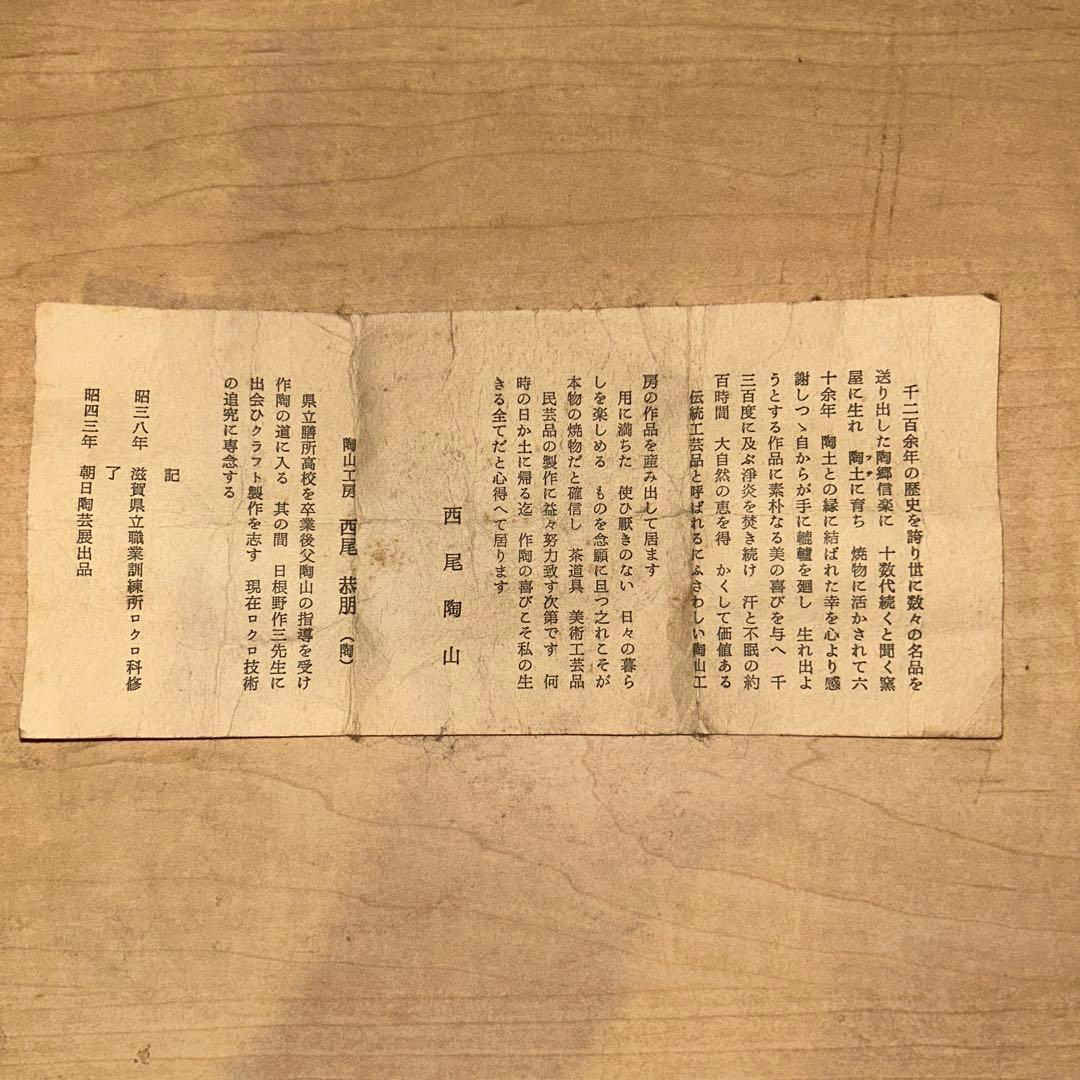 千二百余年の歴史を誇り世に数々の名品を
送り出した陶郷信楽に　十数代続くと聞く窯
屋に生れ　陶土に育ち　焼物に活かされて六
十余年　陶土との縁に結ばれた幸を心より感
謝しつゝ自からが手に轆轤を廻し　生れ出よ
うとする作品に素朴なる美の喜びを与へ　千
三百度に及ぶ淨炎を焚き続け　汗と不眠の約
百時間　大自然の恵を得　かくして価値ある
伝統工芸品と呼ばれるにふさわしい陶山工
房の作品を産み出して居ます
用に満ちた　使ひ厭きのない　日々の暮ら
しを楽しめる　ものを念願に且つ之れこそが
本物の焼物だと確信し　茶道具　美術工芸品
民芸品の製作に益々努力致す次第です　何
時の日か土に帰る迄　作陶の喜びこそ私の生
きる全てだと心得へて居ります
西尾陶山
陶山工房　西尾　恭朋（陶）
県立膳所高校を卒業後父陶山の指導を受け
作陶の道に入る　其の間　日根野作三先生に
出会ひクラフト製作を志す　現在ロクロ技術
の追究に専念する
記
昭三八年　滋賀県立職業訓練所ロクロ科修
了
昭四三年　朝日陶芸展出品